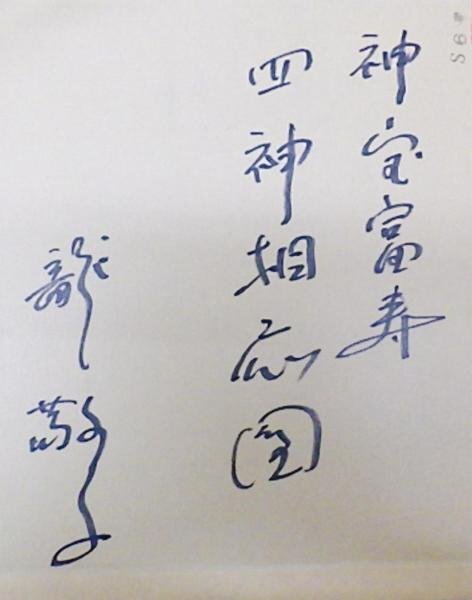 神宝富寿
四神相応図
龍敬